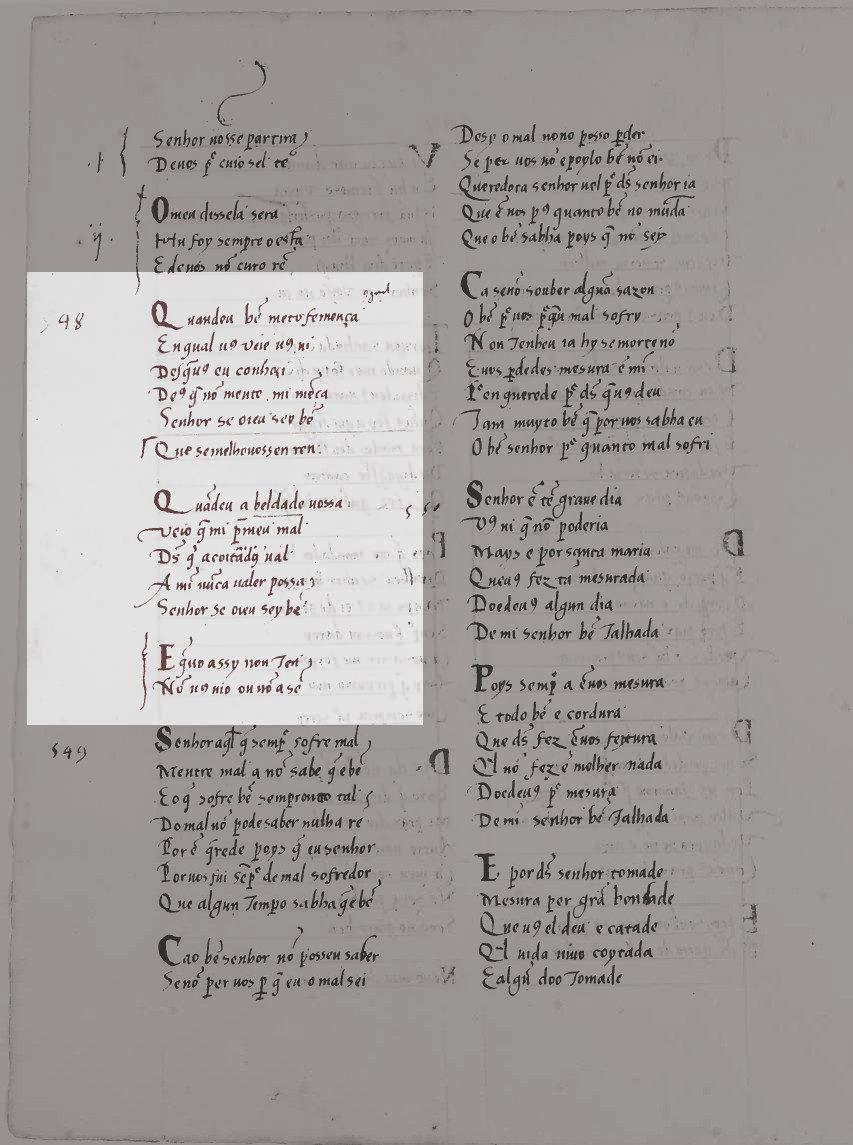 Senhor nosse partira
De uos pr̃ cuio sel te
O meu dissela sera
E de uos nõ curo rẽ
548
Quandeu bẽ meto femença
En qual uꝯ veio uꝯ ui
Des q̃uꝯ eu conhoçi
Deꝯ q̃ nõ mente mi mẽça
Senhor se oieu sey bẽ
Que semelhouossen ren
Quãdeu a beldade uossa
veio q̃ mi p̃ meu mal
Ds̃ q̃ a coitãdꝯ ual
A mi nũca ualer possa
Senhor se oieu sey bẽ
E q̃uo assy non Ten
Nõ uꝯ uio ou nõ a sẽ
549
Senhor aq̃l q̃ semp̃ sofre mal
Mentre mal a nõ sabe q̃ e bẽ
E o q̃ sofre bẽ semprouto tal
Do mal nõ pode saber nulha re
Por ẽ q̃rede poys q̃ eu senhor
Por uos fui sẽp̃ de mal sofredor
Que algun Tempo sabha q̃ e bẽ
Cao bẽ senhor nõ posseu saber
Senõ per uos ꝑ q̃ eu o mal sei
Desy o mal nono posso ꝑder
Se per uos nõ e poylo bẽ nõ ei
Queredora senhor uel pr̃ ds̃ senhor ia
Que ẽ uos pꝯ quanto bẽ no mũda
Que o bẽ sabha poys q̃ nõ sey
Ca senõ souber algũa sazon
O bẽ pr̃ uos pr̃ q̃u mal sofry
Non Tenheu ia hy se morte nõ
E uos ꝑdedes mesura ẽ mi
Pr̃ en querede pr̃ ds̃ q̃uꝯ deu
Tam muyto bẽ q̃ por uos sabha eu
O bẽ senhor pr̃ quanto mal sofri
Senhor ẽ tẽ graue dia
Vꝯ ui q̃ nõ poderia
Mays e por santa maria
Que uꝯ fez tã mesurada
Doedeuꝯ algun dia
De mi senhor bẽ Talhada
Poys semp̃ a ẽ uos mesura
E todo bẽ e cordura
Que ds̃ fez ẽ uos feytura
Q̃l nõ fez ẽ molher nada
Doedeuꝯ pr̃ mesura
De mi senhor bẽ Talhada
E por ds̃ senhor tomade
Mesura per grã bondade
Que uꝯ el deu e catade
Q̃l uida uiuo coytada
E algũ doo Tomade